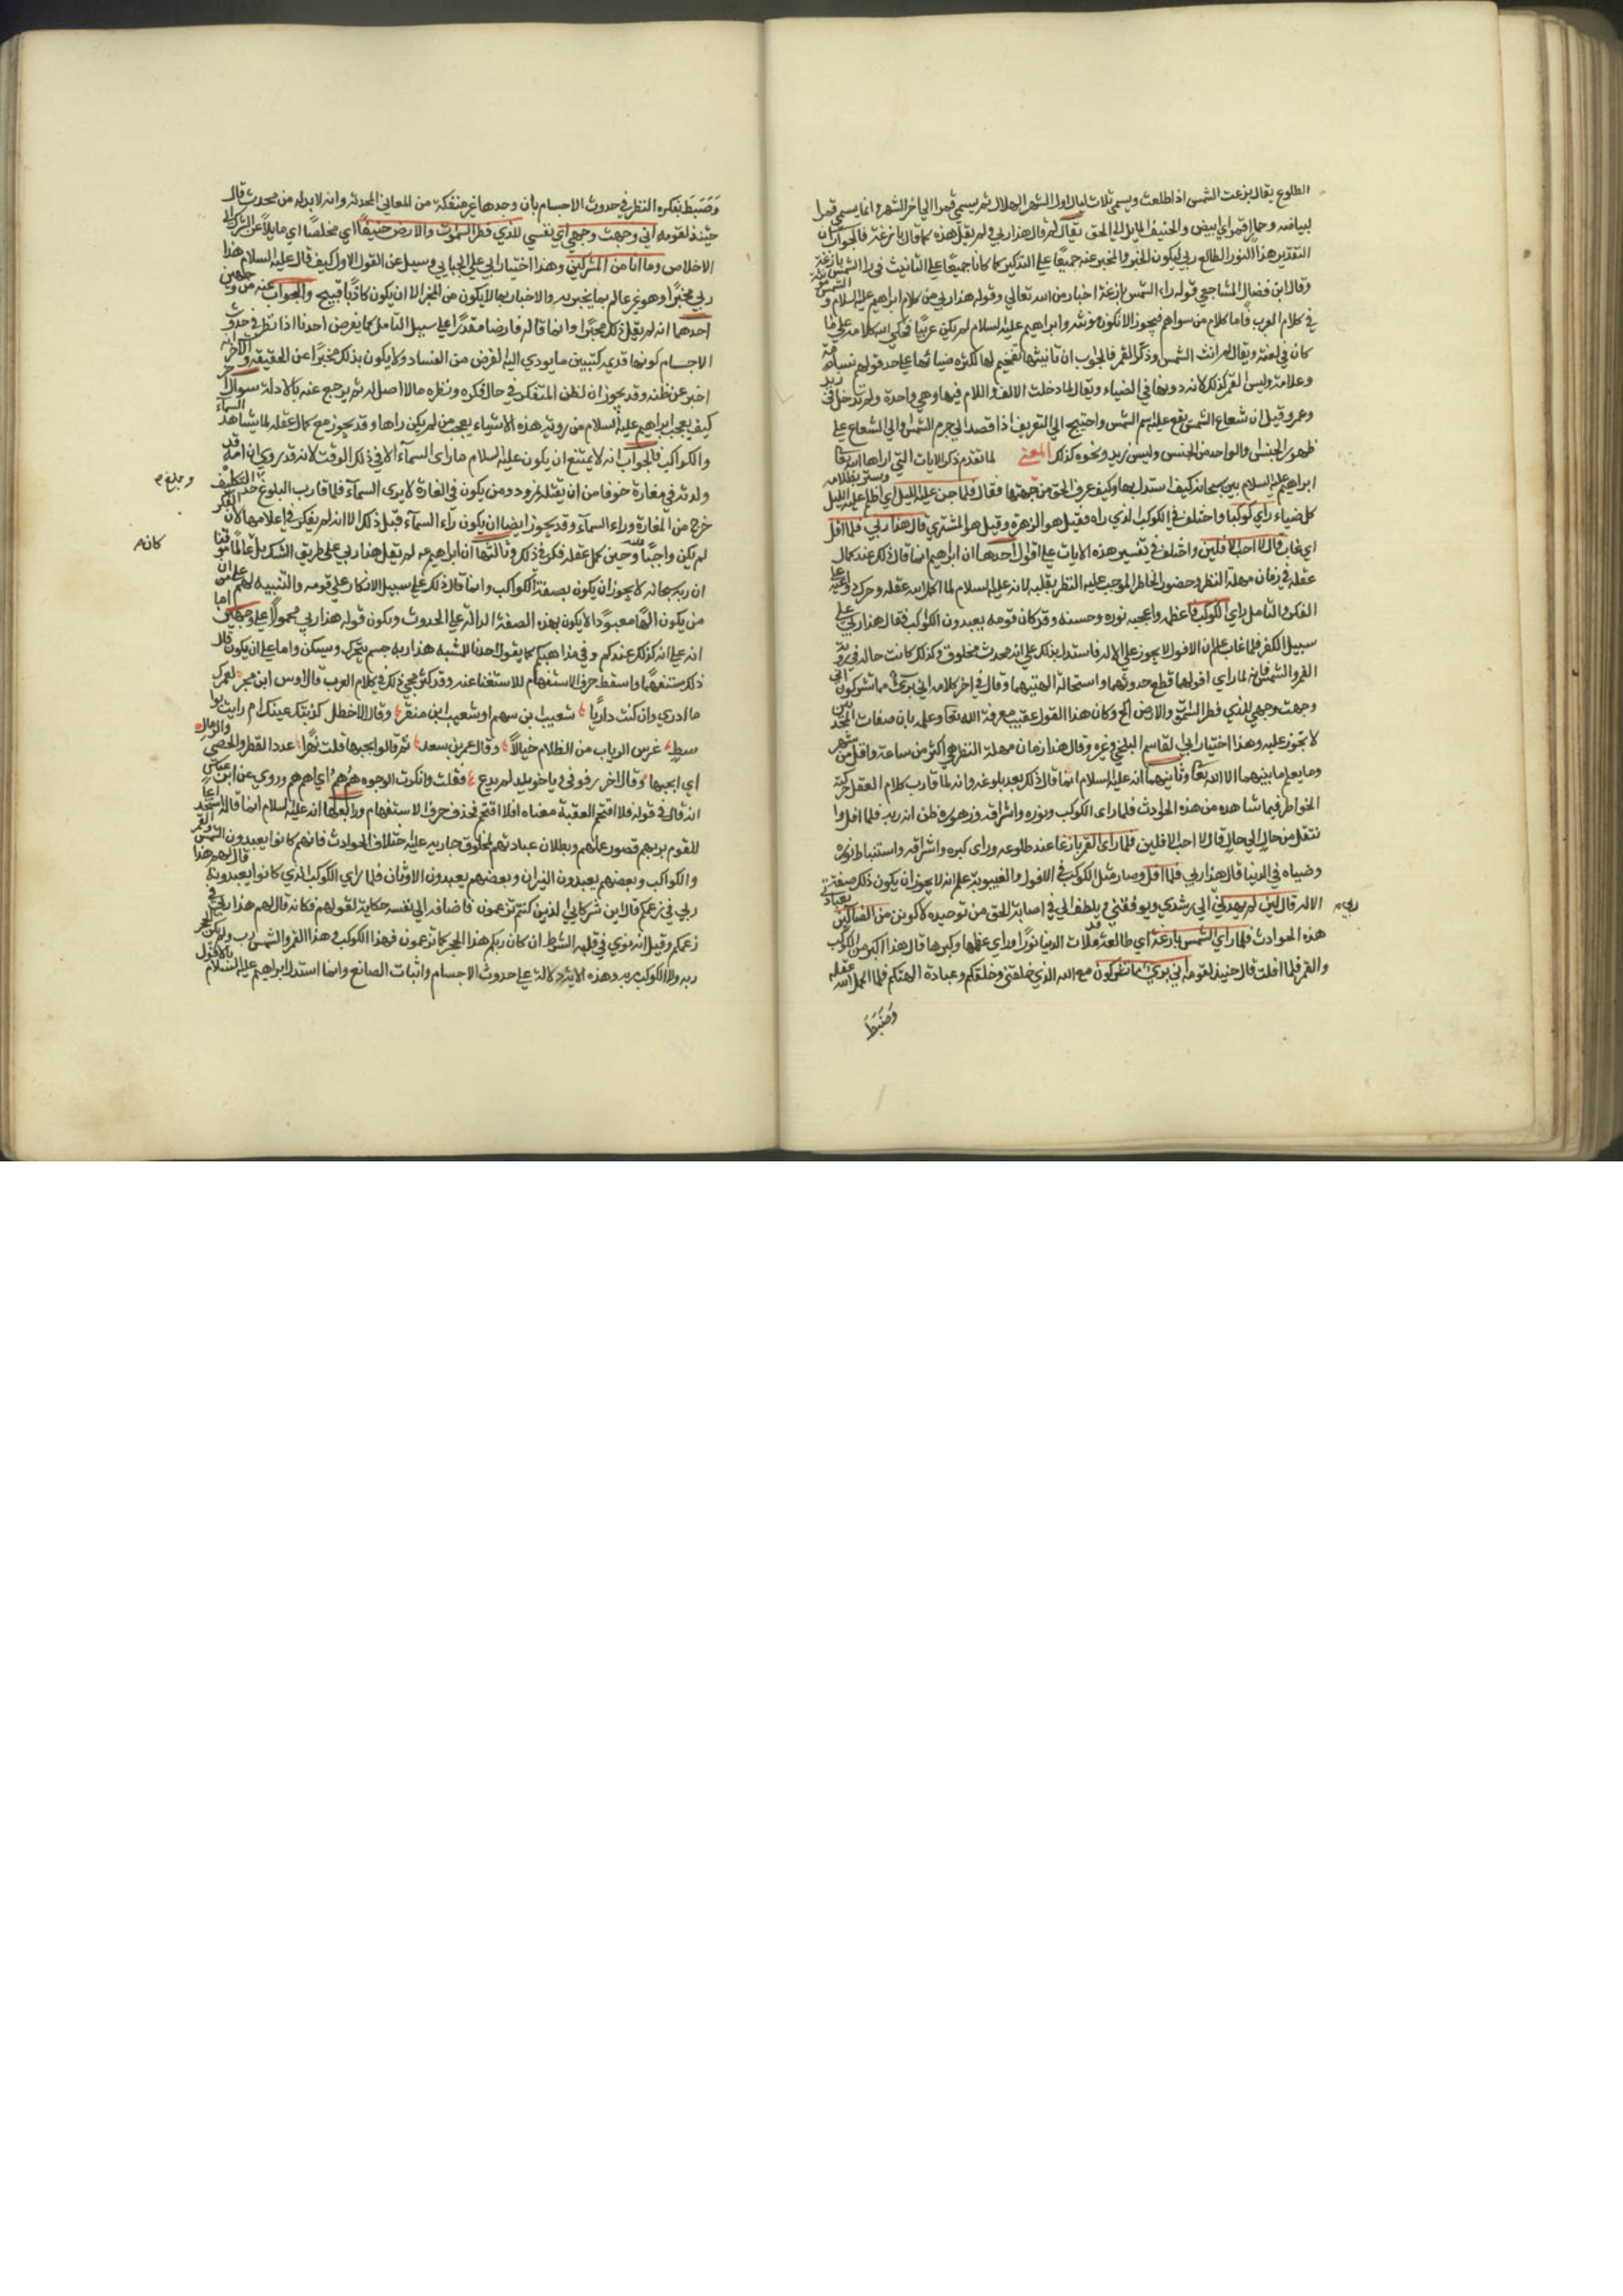 الطلوع يقال بزغت الشمس اذا طلعت ويسمي ثلاث ليال اول الشهر الهلال ثم يسمي قمرا الي اخر الشهر وانما يسمي قمرا
لبياضه وحمار اقمر اي ابيض والحنيف المايل الي الحق يقال لم قال هذا ربي ولم يقل هذه كما قال بازغة فالجواب ان
التقدير هذا النور الطالع ربي ليكون الخبر والمخبر عنه جميعا علي التذكير كما كانا جميعا علي التانيث في راا الشمس بازغة
وقال ابن فضال المشاجعي قوله راء الشمس بازغة اخبار من الله تعالي وقوله هذا ربي من كلام ابراهيم عليه السلام والشمس مونثة
في كلام العرب فاما كلام من سواهم فيجوز الا تكون مونثه وابراهيم عليه السلام لم يكن عربيا فحكي الله كلامه علي ما
كان في لغته ويقال لم انث الشمس وذكر القمر فالجواب ان تانيثها تفخيم لها لكثره ضيائها علي حد قولهم نسابة
وعلامة وليس القمر كذلك لانه دونها في الضياء ويقال لما دخلت الالف واللام فيها وهي واحدة ولم تدخل في زيد
وعمرو قيل ان شعاع الشمس يقع عليه اسم الشمس واحتيج الي التعريف اذا قصد الي جرم الشمس والي الشعاع علي
طريق الجنس والواحد من الجنس وليس زيد ونحوه كذلك المعني لما تقدم ذكر الايات التي اراها الله تعا
ابراهيم عليه السلام بين سبحانه كيف استدل بها وكيف عرف الحق من جهتها فقال فلما جن عليه الليل اي اظلم عليه الليل وستر بظلامه
كل ضياء راي كوكبا واختلف في الكوكب الذي راه فقيل هو الزهرة وقيل هو المشتري قال هذا ربي فلما افل
اي غاب قال لا احب الافلين واختلف في تفسير هذه الايات علي اقوال احدها ان ابراهيم انما قال ذلك عند كمال
عقله في زمان مهلة النظر وحضور الخاطر الموجب عليه النظر بقلبه لانه عليه السلام لما اكمل الله عقله وحرك دواعيه علي
الفكر والتامل راي الكوكب فاعظمه واعجبه نوره وحسنه وقد كان قومه يعبدون الكواكب فقال هذا ربي علي
سبيل الفكر فلما غاب علم ان الافول لا يجوز علي الاله فاستدل بذلك علي انه محدث مخلوق وكذلك كانت حاله في روية
القمر والشمس فانه لما راي افولهما قطع حدوثهما واستحالة الهيتهما وقال في اخر كلامه اني بري مما تشركون اني
وجهت وجهي للذي فطر السموات والارض الخ وكان هذا القول عقيب معرفة الله تعا وعلمه بان صفات المحدثين
لا تجوز عليه وهذا اختيار ابي القاسم البلخي وغيره وقال هذا زمان مهلة النظر هي اكثر من ساعة واقل من شهر
وما يعلم ما بينهما الا الله تعا وثانيهما انه عليه السلام انما قال ذلك بعد بلوغه وانه لما قارب كلام العقل حركته
الخواطر فيما شاهده من هذه الحوادث فلما راى الكوكب ونوره واشراقه وزهوره ظن انه ربه فلما افل وا
نتقل من حال الي حال قال لا احب الافلين فلما راى القمر بازغا عند طلوعه وراى كبره واشراقه واستنباط نوره
وضياه في الدنيا قال هذا ربي فلما افل وصار مثل الكوكب في الافول والغيبوبة علم انه لا يجوز ان يكون ذلك صفة
الاله قال لئن لم يهدني الي رشدي ويوفقني ويلطف لي في اصابة الحق من توحيده لاكونن من الضالين بعبادة
ربي م
هذه الحوادث فلما راي الشمس بازغة اي طالعة قد ملات الدنيا نورا وراي عظمها وكبرها قال هذا اكبر من الكوكب
والقمر فلما افلت قال حينئذ لقومه اني بري مما تشركون مع الله الذي خلقني وخلقكم وعبادة الهتكم فلما اكمل الله عقله
وضبط
وضبط بفكره النظر في حدوث الاجسام بان وجدها غير منفكة من المعاني المحدثه وانه لا بد له من محدث قال
حينئذ لقومه اني وجهت وجهي اي نفسي للذي فطر السموات والارض حنيفا اي مخلصا اي مايلا عن الشرك الي
الاخلاص وما انا من المشركين وهذا اختيار ابي علي الجبايي وسيل عن القول الاول كيف قال عليه السلام هذا
ربي مخبرا وهو غير عالم بما يخبر به والاخبار بما لا يكون من المخبر الا ان يكون كاذبا قبيح والجواب عنه من وجهين
احدهما انه لم يقل ذلك مخبرا وانما قاله فارضا مقدرا علي سبيل التامل كما يفرض احدنا اذا نظر في حدوث
الاجسام كونها قديمه ليتبين ما يودي اليه الفرض من الفساد ولا يكون بذلك مخبرا عن الحقيقه والاخر انه
اخبر عن ظنه وقد يجوز ان يظن المتفكر في حال فكره ونظره ما لا اصل له ثم يرجع عنه بالادلة سوال اخر
كيف يعجب ابراهيم عليه السلام من روية هذه الاشياء يعجب من لم يكن راها وقد يجوز مع كمال عقله لما يشاهد السماء
والكواكب فالجواب انه لا يمتنع ان يكون عليه السلام ما راى السماء الا في ذلك الوقت لانه قد روي ان امه قد
ولدته في مغارة خوفا من ان يقتله نمرود ومن يكون في المغارة لا يرى السماء فلما قارب البلوغ حد التكليف
وبلغ م
خرج من المغارة وراء السماء وقد يجوز ايضا ان يكون راء السماء قبل ذلك الا انه لم يفكر في اعلامها لان الفكر
لم يكن واجبا وحين كمل عقله فكر في ذلك وثالثها ان ابراهيم عم لم يقل هذا ربي علي طريق الشك بل عالما موقنا
كان م
ان ربه سبحانه لا يجوز ان يكون بصفة الكواكب وانما قال ذلك علي سبيل الانكار علي قومه والتنبيه لهم علي ان
من يكون الها معبودا لا يكون بهذه الصفة الدالة علي الحدوث ويكون قوله هذا ربي محمولا علي وجهين اما
انه علي انه كذلك عندكم وفي مذاهبكم كما يقول احدنا للمشبه هذا ربه جسم يتحرك ويسكن واما علي ان يكون قال
ذلك مستفهما واسقط حرف الاستفهام للاستغنا عنه وقد كثر مجي ذلك في كلام العرب قال اوس ابن حجر لعمرك
ما ادري وان كنت داريا شعيب ابن سهم او شعيب ابن منقر وقال الاخطل كذبتك عينك ام رايت بوا
سط غلس الرباب من الظلام خيالا وقال عمر بن سعد ثم قالوا تحبها قلت بهرا عدد القطر والحصي والرمال
اي اتحبها وقال اخر رفوني وقالوا يا خويلد لم يرع فقلت وانكرت الوجوه هم هم اي اهم هم وروي عن ابن عباس
انه قال في قوله فلا اقتحم العقبة معناه افلا اقتحم فحذف حرف الاستفهام ورابعها انه عليه السلام انما قال استخدا
للقوم يريهم قصور علمهم وبطلان عبادتهم لمخلوق جاريه عليه اختلاف الحوادث فانهم كانوا يعبدون الشمس والقمر
والكواكب وبعضهم يعبدون النيران وبعضهم يعبدون الاوثان فلما راي الكوكب الذي كانوا يعبدونه قال لهم هذا
ربي في زعمكم كما قال اين شركاءي الذين كنتم تزعمون فاضافه الي نفسه حكاية لقولهم فكانه قال لهم هذا ربي في
زعمكم وقيل انه نوي في قلبه الشرط ان كان ربكم هذا الحجر كما تزعمون فهذا الكوكب وهذا القمر والشمس رب ولم يكن الحجر
ربه ولا الكوكب ربه وهذه الاية دلالة علي حدوث الاجسام واثبات الصانع وانما استدل ابراهيم عليه السلام بالافول